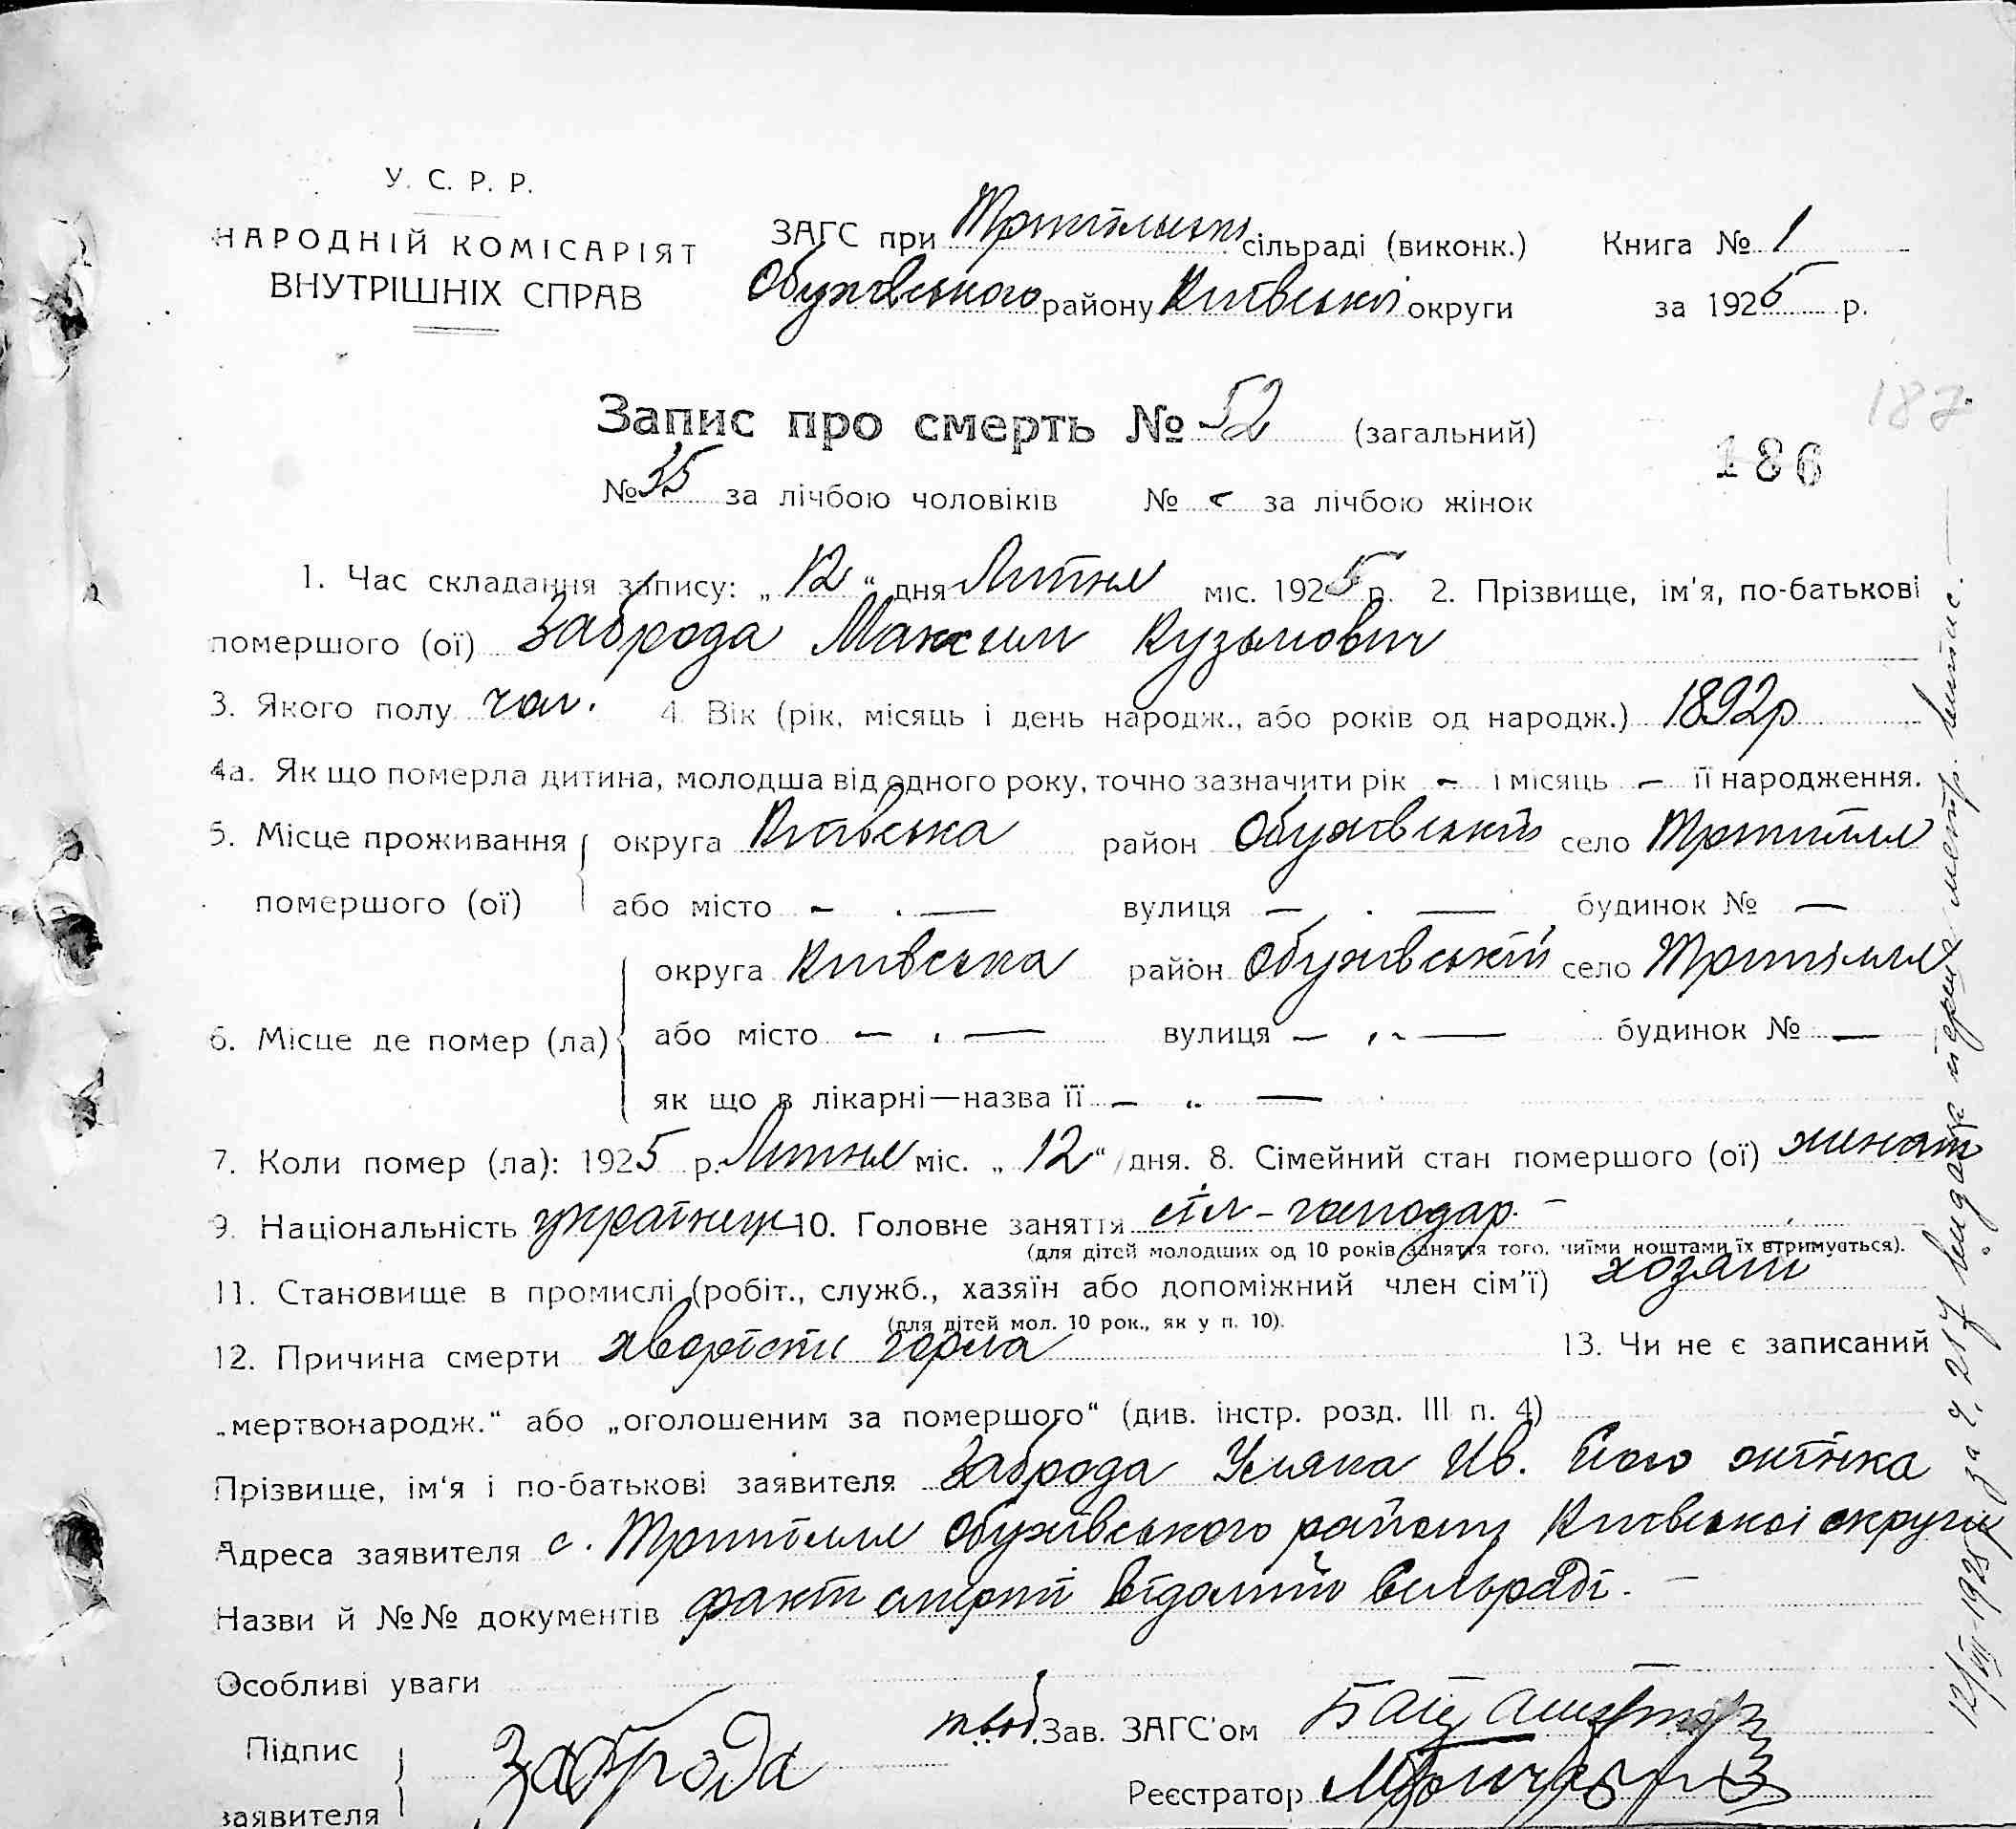 У. С. Р. Р.
НАРОДНІЙ КОМІСАРІЯТ
ВНУТРІШНІХ СПРАВ
ЗАГС при Трипільській сільраді (виконк.) Книга № 1
Обухівського району Київської округи за 1925 р.
Запис про смерть № 52 (загальний)
187
186
№ 35 за лічбою чоловіків № - за лічбою жінок
1. Час складання запису: „ 12 “ дня Липня міс. 1925 р. 2. Прізвище, ім'я, по-батькові
помершого (ої) Заброда Максим Кузьмович
3. Якого полу чол. 4. Вік (рік, місяць і день народж., або років од народж.) 1892р
4а. Як що померла дитина, молодша від одного року, точно зазначити рік – і місяць – її народження.
5. Місце проживання округа Київська район Обухівський село Трипілля
помершого (ої) або місто – . — вулиця – . — будинок № —
округа Київська район Обухівський село Трипілля
6. Місце де помер (ла) або місто – . — вулиця – . — будинок № —
як що в лікарні—назва її – „ —
7. Коли помер (ла): 1925 р. Липня міс. „ 12 “ дня. 8. Сімейний стан помершого (ої) жинат
9. Національність українець 10. Головне заняття сіл-господар. –
(для дітей молодших од 10 років заняття того, чиїми коштами їх втримується).
11. Становище в промислі (робіт., служб., хазяїн або допоміжний член сім'ї) хозяїн
(для дітей мол. 10 рок., як у п. 10).
12. Причина смерти хворісти горла 13. Чи не є записаний
„мертвонародж.“ або „оголошеним за помершого“ (див. інстр. розд. III п. 4)
Прізвище, ім'я і по-батькові заявителя Заброда Ів. його жінка
Адреса заявителя с. Трипілля Обухівського району Київської округи
Назви й №№ документів факт смерти відомий сельраді. –
Особливі уваги
Підпис заявителя Заброда
Зав. ЗАГС'ом
Реєстратор
12/VII-1925 за ч. 217 видана перша метр. випис. —